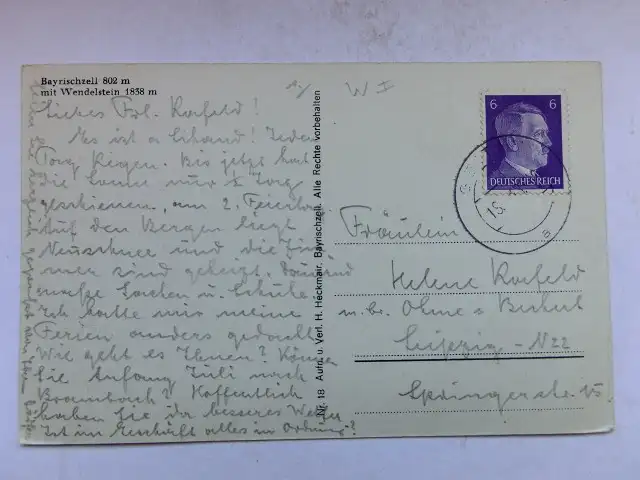 Bayrischzell 802 m
mit Wendelstein 1838 m
Liebes Frl. Korfeld!
Es ist a Schand! Jeden
Tag Regen. Bis jetzt hat
die Sonne nur 1 Tag
geschienen, am 2. Ferientag
Auf den Bergen liegt
Neuschnee und die Zim
mer sind geheizt.
nasse Sachen u. Schuhe.
Ich hatte mir meine
Ferien anders gedacht.
Wie geht es Ihnen? Können
Sie Anfang Juli nach
Brambach? Hoffentlich
haben Sie da besseres Wetter
Ist im Geschäft alles in Ordnung?
Nr. 18 Aufn. u. Verl. H. Heckmair, Bayrischzell. Alle Rechte vorbehalten
W I
6 6
DEUTSCHES REICH
Fräulein
Helene Korfeld
Leipzig - N22
Springerstr. 15